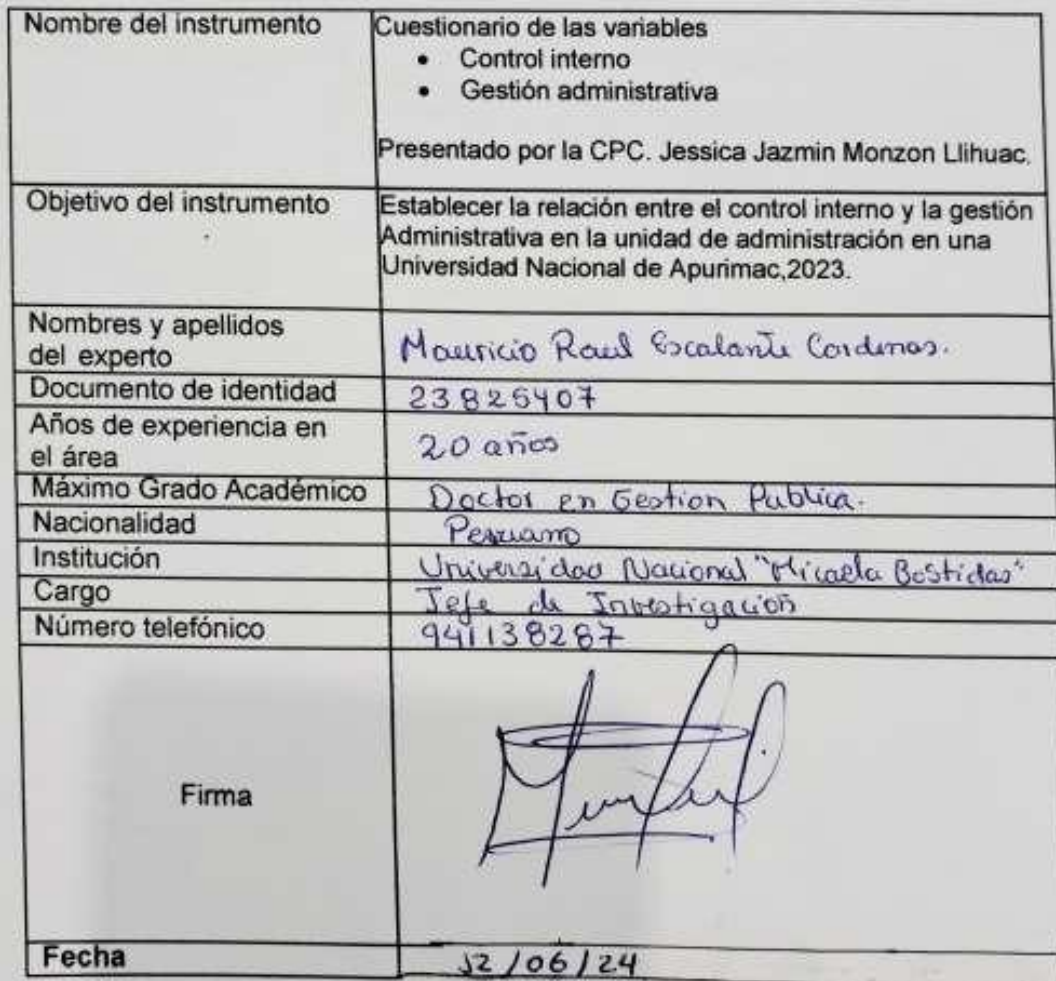 Nombre del instrumento
Cuestionario de las variables
• Control interno
• Gestión administrativa
Presentado por la CPC. Jessica Jazmin Monzon Llihuac.
Objetivo del instrumento
Establecer la relación entre el control interno y la gestión
Administrativa en la unidad de administración en una
Universidad Nacional de Apurimac,2023.
Nombres y apellidos
del experto
Mauricio Raul Escalante Cardenas.
Documento de identidad
23825407
Años de experiencia en
el área
20 años
Máximo Grado Académico
Doctor en Gestion Publica.
Nacionalidad
Peruano
Institución
Universidad Nacional "Micaela Bastidas"
Cargo
Jefe de Investigación
Número telefónico
941138287
Firma
Fecha
12/06/24